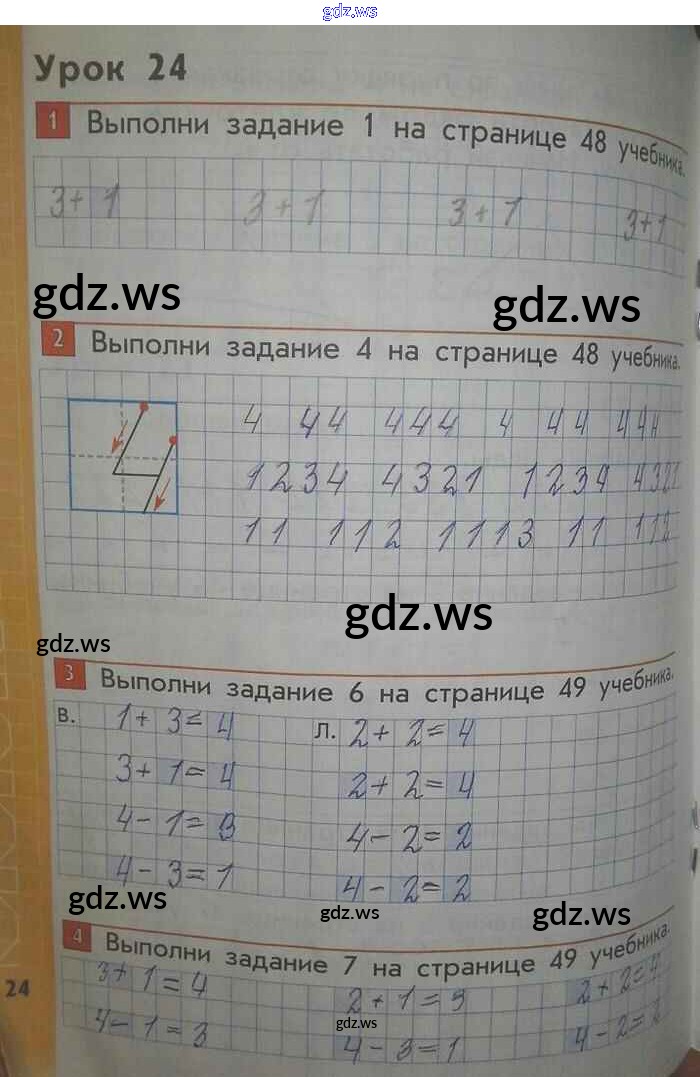 gdz.ws
Урок 24
1 Выполни задание 1 на странице 48 учебника.
3+1 3+1 3+1 3+1
gdz.ws gdz.ws
2 Выполни задание 4 на странице 48 учебника.
4 44 444 4 44 444
1234 4321 1234 4321
11 112 1113 11 112
gdz.ws
gdz.ws
3 Выполни задание 6 на странице 49 учебника.
В. 1+3=4 Л. 2+2=4
3+1=4 2+2=4
4-1=3 4-2=2
4-3=1 4-2=2
gdz.ws gdz.ws gdz.ws
4 Выполни задание 7 на странице 49 учебника.
3+1=4 2+1=3 2+2=4
4-1=3 4-3=1 4-2=2
gdz.ws
24